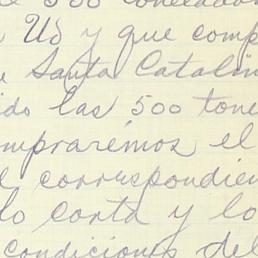 500 tonelada
Ud y que comp
Santa Catalin
ido las 500 tone
mpraremos el
l correspondien
lo corta y lo
condiciones del